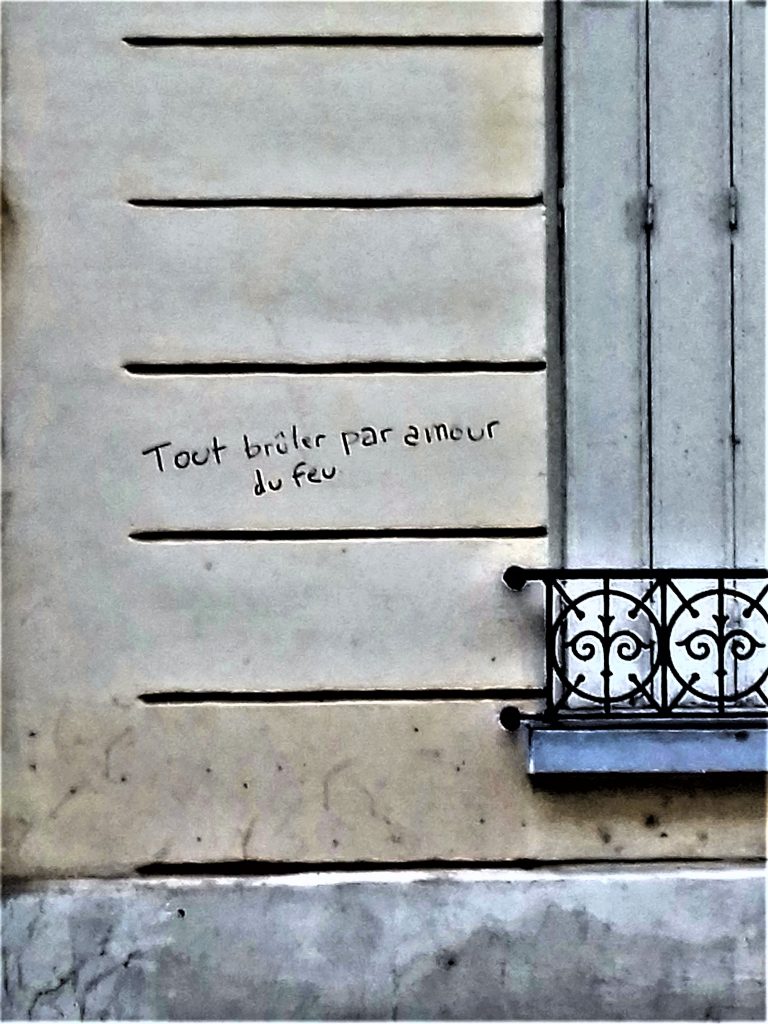 Tout brûler par amour
du feu